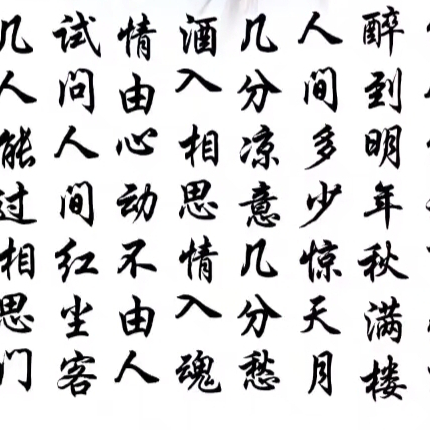 醉到明年秋满楼
人间多少惊天月
几分凉意几分愁
酒入相思情入魂
情由心动不由人
试问人间红尘客
几人能过相思门